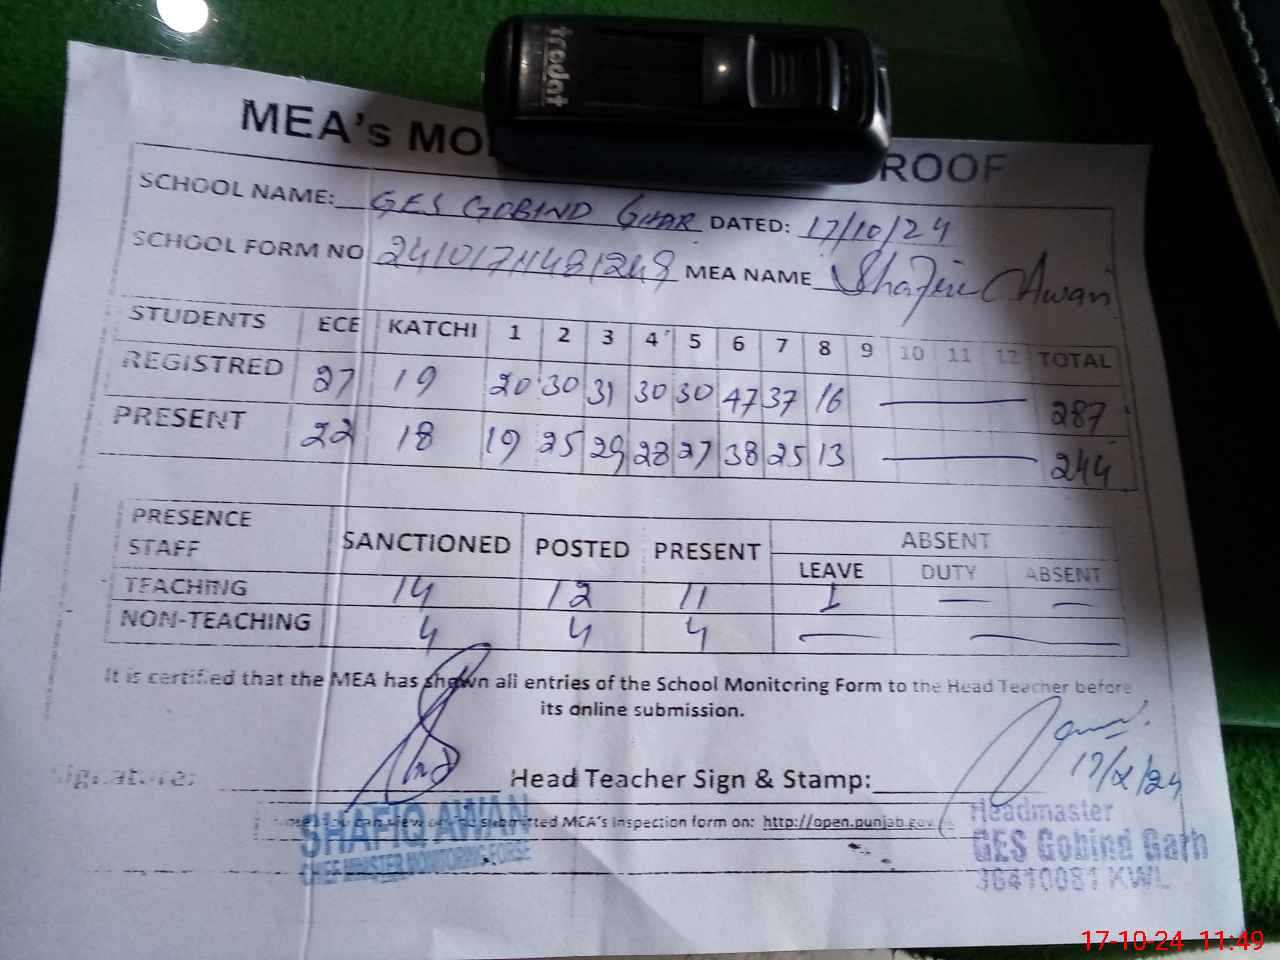 trodat
MEA's MO ROOF
SCHOOL NAME: GES GOBIND GHAR DATED: 17/10/24
SCHOOL FORM NO MEA NAME Shafiq Awan
STUDENTS ECE KATCHI 1 2 3 4 5 6 7 8 9 10 11 12 TOTAL
REGISTRED 27 19 20 30 31 30 30 47 37 16 — 287
PRESENT 22 18 19 25 29 28 27 38 25 13 — 244
PRESENCE STAFF SANCTIONED POSTED PRESENT ABSENT
LEAVE DUTY ABSENT
TEACHING 14 12 11 1 — —
NON-TEACHING 4 4 4 — —
It is certified that the MEA has shown all entries of the School Monitoring Form to the Head Teacher before
its online submission.
17/X/24
Signature: Head Teacher Sign & Stamp:
submitted MEA's inspection form on: http://open.punjab.gov
SHAFIQ AWAN
CHIEF MINISTER MONITORING FORSE
Headmaster
GES Gobind Garh
38410081 KWL
17-10-24 11:49